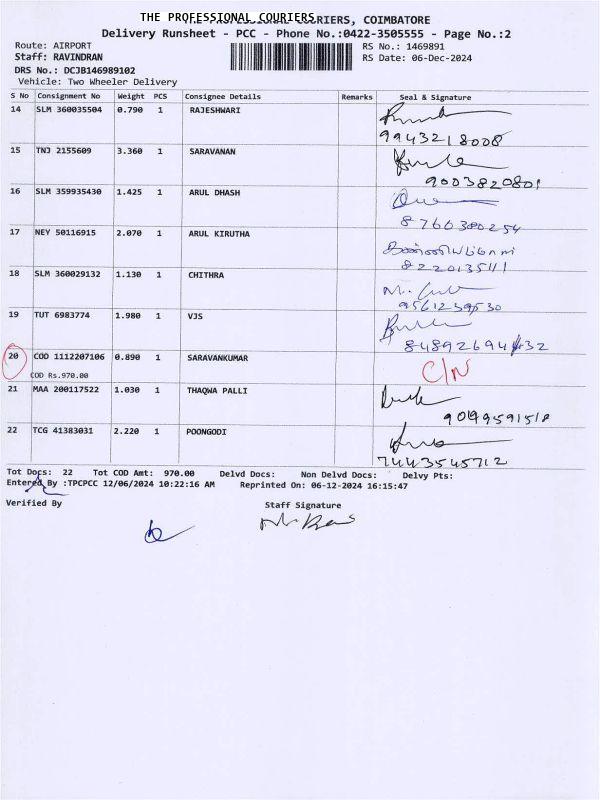 THE PROFESSIONAL COURIERS, COIMBATORE
Delivery Runsheet - PCC - Phone No.:0422-3505555 - Page No.:2
Route: AIRPORT RS No.: 1469891
Staff: RAVINDRAN RS Date: 06-Dec-2024
DRS No.: DCJB146989102
Vehicle: Two Wheeler Delivery
S No Consignment No Weight PCS Consignee Details Remarks Seal & Signature
14 SLM 360035504 0.790 1 RAJESHWARI
9943218008
15 TNJ 2155609 3.360 1 SARAVANAN
9003820801
16 SLM 359935430 1.425 1 ARUL DHASH
8760380254
17 NEY 50116915 2.070 1 ARUL KIRUTHA
8220135411
18 SLM 360029132 1.130 1 CHITHRA
9561239530
19 TUT 6983774 1.980 1 VJS
20 COD 1112207106 0.890 1 SARAVANKUMAR C/N
COD Rs.970.00
21 MAA 200117522 1.030 1 THAQWA PALLI
22 TCG 41383031 2.220 1 POONGODI
7443545712
Tot Docs: 22 Tot COD Amt: 970.00 Delvd Docs: Non Delvd Docs: Delvy Pts:
Entered By :TPCPCC 12/06/2024 10:22:16 AM Reprinted On: 06-12-2024 16:15:47
Verified By Staff Signature